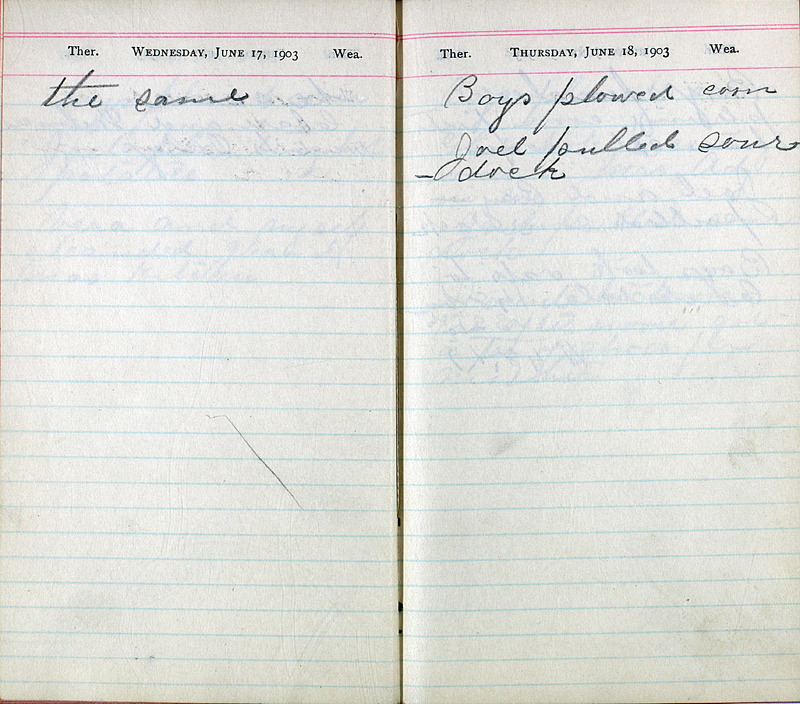 Ther. WEDNESDAY, JUNE 17, 1903 Wea.
the same
Ther. THURSDAY, JUNE 18, 1903 Wea.
Boys plowed corn
Joel pulled sour
-dock